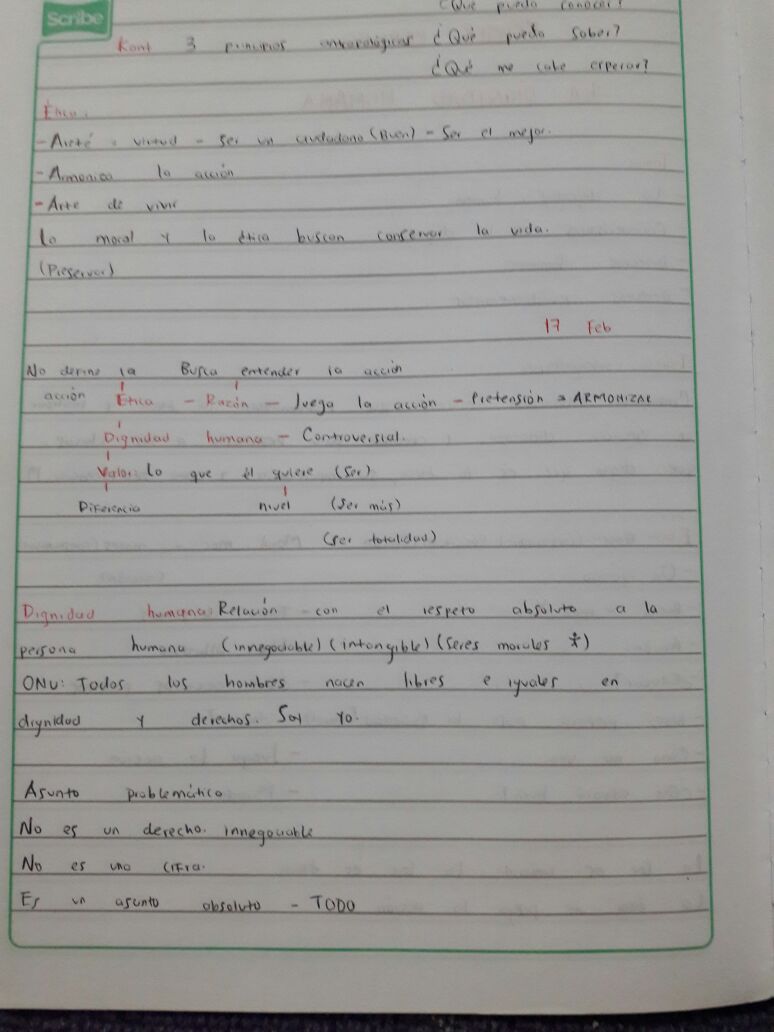 Scribe
¿Qué puedo conocer?
Kant 3 principios antropológicos ¿Qué puedo saber?
¿Qué me cabe esperar?
Ética:
- Areté = virtud - Ser un ciudadano (Buen) - Ser el mejor.
- Armoniza la acción
- Arte de vivir
La moral y la ética buscan conservar la vida.
(Preservar)
17 Feb
No define la Busca entender la acción
acción Ética - Razón - Juega la acción - Pretensión = ARMONIZAR
Dignidad humana - Controversial.
Valor: Lo que él quiere (Ser)
Diferencia nivel (Ser más)
(ser totalidad)
Dignidad humana: Relación con el respeto absoluto a la
persona humana (innegociable) (intangible) (Seres morales)
ONU: Todos los hombres nacen libres e iguales en
dignidad y derechos. Soy yo.
Asunto problemático
No es un derecho. innegociable
No es una cifra.
Es un asunto absoluto - TODO